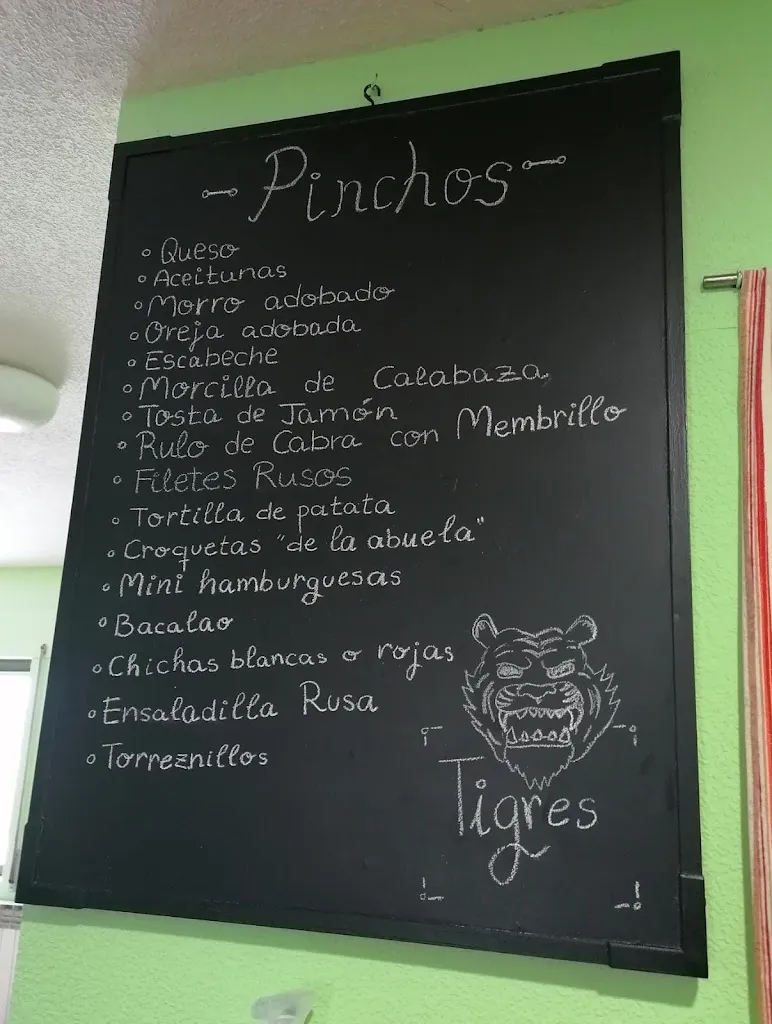 - Pinchos -
Queso
Aceitunas
Morro adobado
Oreja adobada
Escabeche
Morcilla de Calabaza
Tosta de Jamón
Rulo de Cabra con Membrillo
Filetes Rusos
Tortilla de patata
Croquetas "de la abuela"
Mini hamburguesas
Bacalao
Chichas blancas o rojas
Ensaladilla Rusa
Torreznillos
Tigres